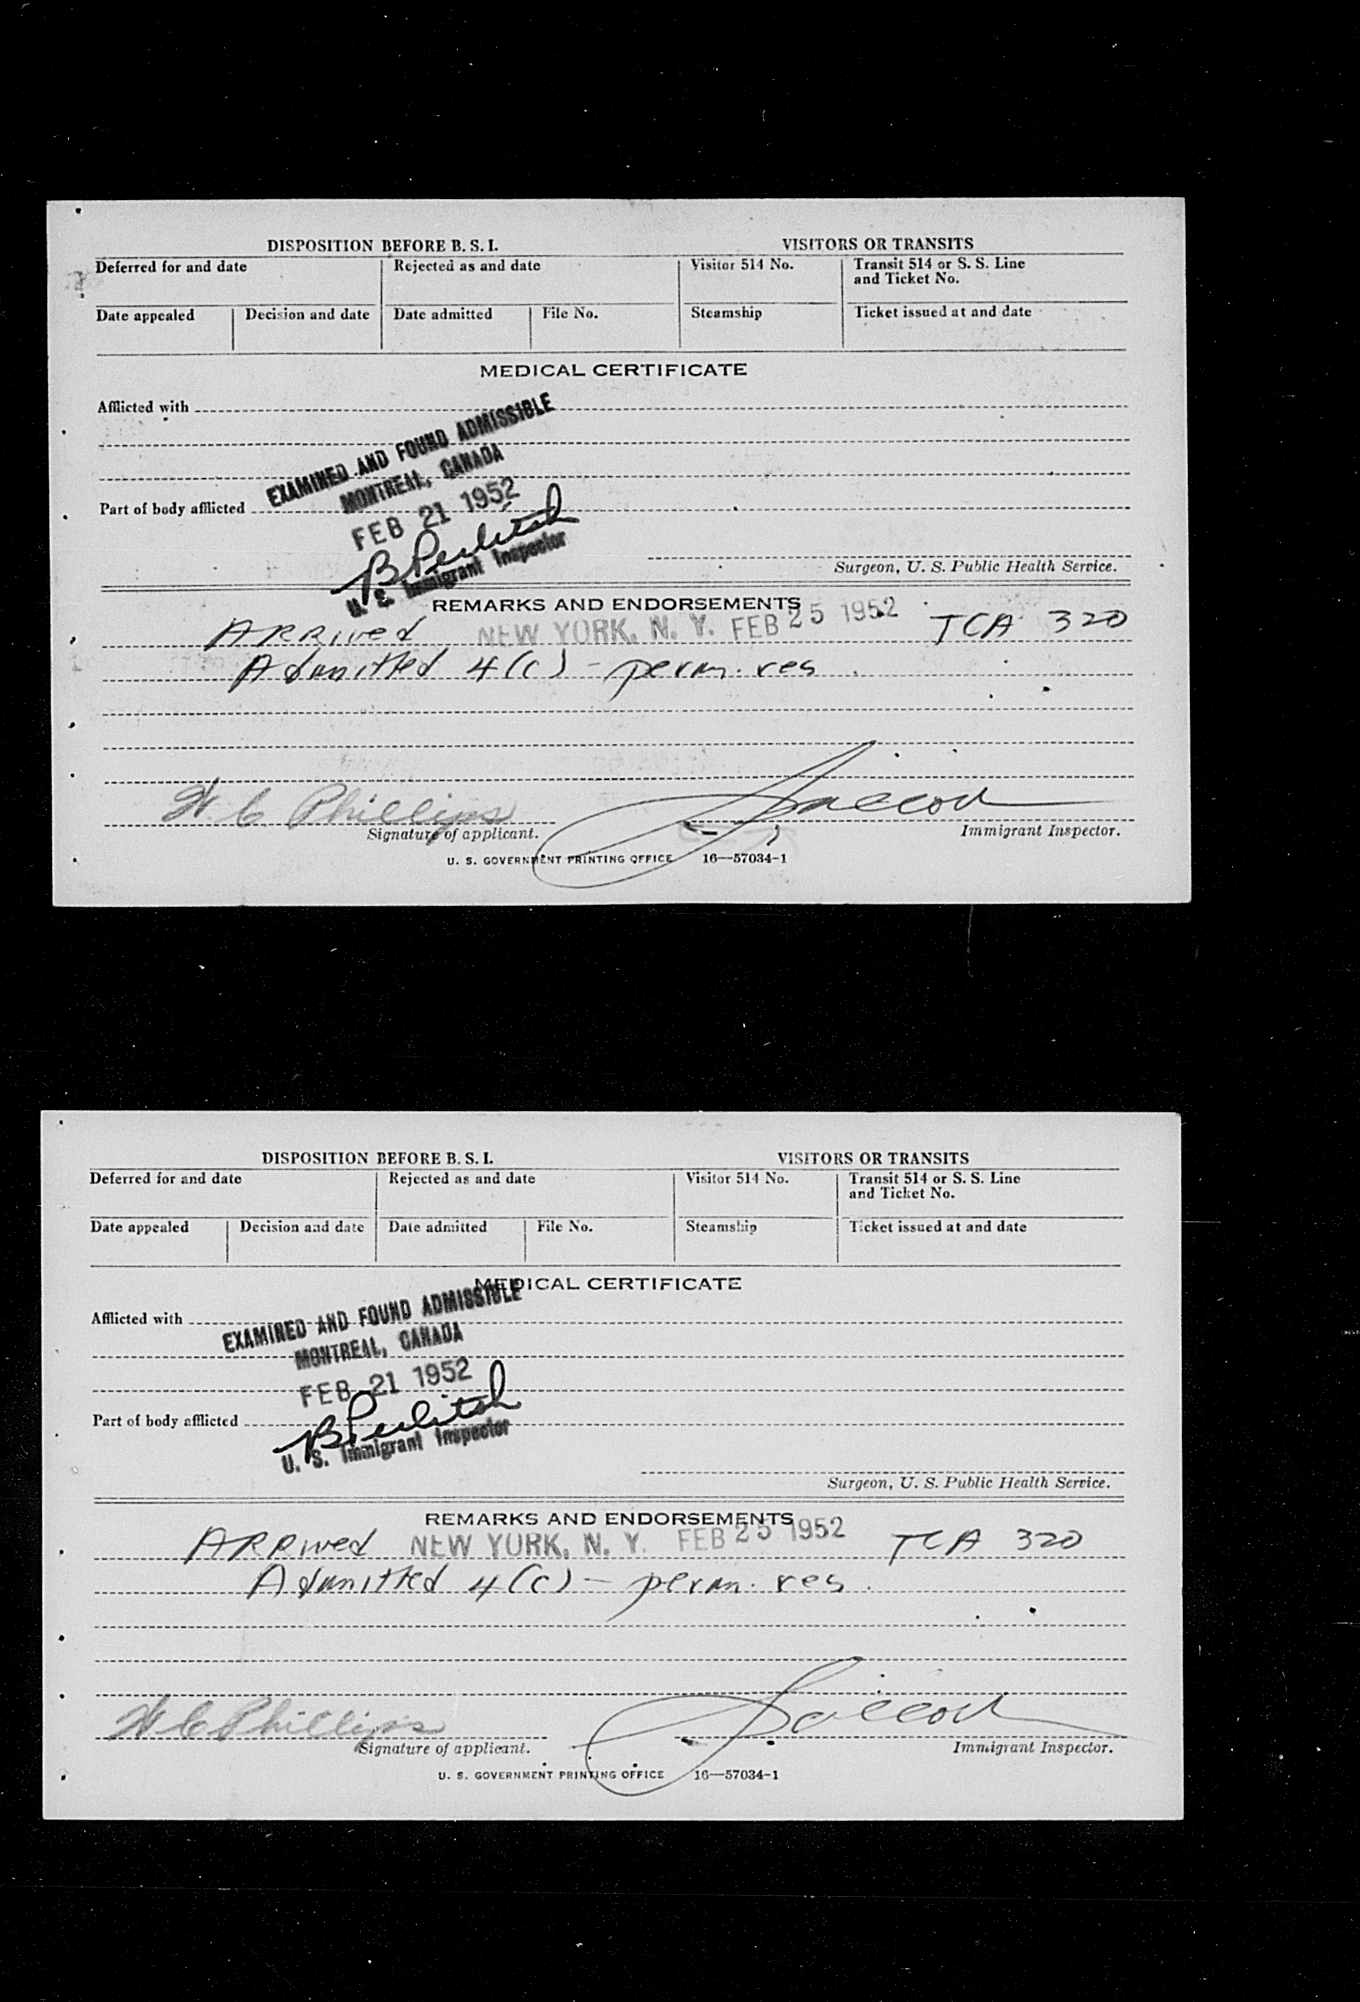 DISPOSITION BEFORE B. S. I. VISITORS OR TRANSITS
Deferred for and date Rejected as and date Visitor 514 No. Transit 514 or S. S. Line
and Ticket No.
Date appealed Decision and date Date admitted File No. Steamship Ticket issued at and date
MEDICAL CERTIFICATE
Afflicted with
EXAMINED AND FOUND ADMISSIBLE
MONTREAL, CANADA
Part of body afflicted
FEB 21 1952
B Perlitsh
U. S. Immigrant Inspector
Surgeon, U. S. Public Health Service.
REMARKS AND ENDORSEMENTS
ARRived NEW YORK, N. Y. FEB 25 1952 TCA 320
Admitted 4(c) - perm. res.
W. C Phillips
Signature of applicant. Immigrant Inspector.
U. S. GOVERNMENT PRINTING OFFICE 16—57034-1
DISPOSITION BEFORE B. S. I. VISITORS OR TRANSITS
Deferred for and date Rejected as and date Visitor 514 No. Transit 514 or S. S. Line
and Ticket No.
Date appealed Decision and date Date admitted File No. Steamship Ticket issued at and date
MEDICAL CERTIFICATE
Afflicted with
EXAMINED AND FOUND ADMISSIBLE
MONTREAL, CANADA
FEB 21 1952
Part of body afflicted
B Perlitsh
U. S. Immigrant Inspector
Surgeon, U. S. Public Health Service.
REMARKS AND ENDORSEMENTS
ARRived NEW YORK, N. Y. FEB 25 1952 TCA 320
Admitted 4(c) - perm. res.
W C Phillips
Signature of applicant. Immigrant Inspector.
U. S. GOVERNMENT PRINTING OFFICE 16—57034-1